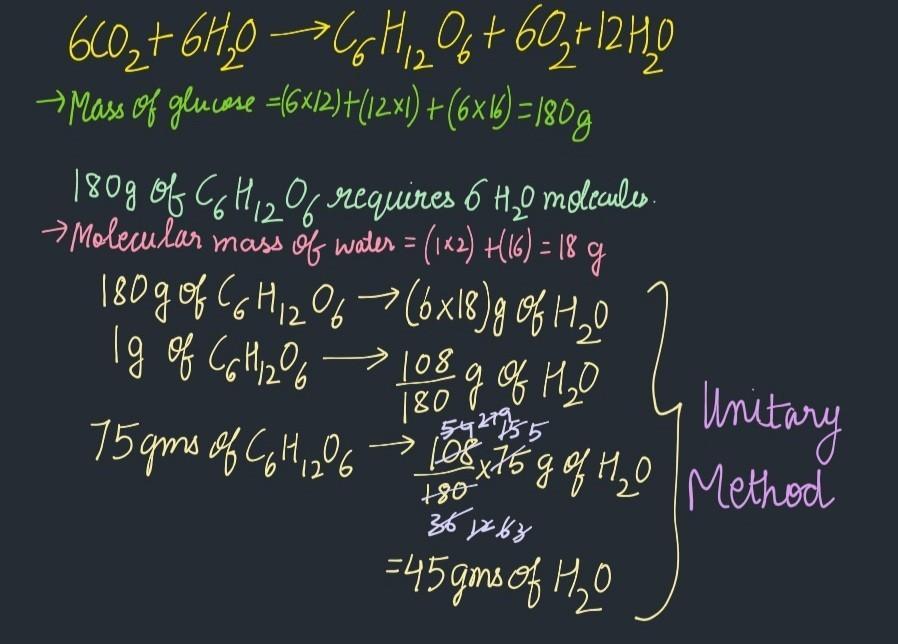 6CO₂ + 6H₂O → C₆H₁₂O₆ + 6O₂ + 12H₂O
→ Mass of glucose = (6×12) + (12×1) + (6×16) = 180g
180g of C₆H₁₂O₆ requires 6 H₂O molecules.
→ Molecular mass of water = (1×2) + (16) = 18 g
180g of C₆H₁₂O₆ → (6×18)g of H₂O
1g of C₆H₁₂O₆ → 108/180 g of H₂O
54 27 9 15 5
75gms of C₆H₁₂O₆ → 108/180 × 75 g of H₂O
36 12 6 3
= 45gms of H₂O
Unitary
Method